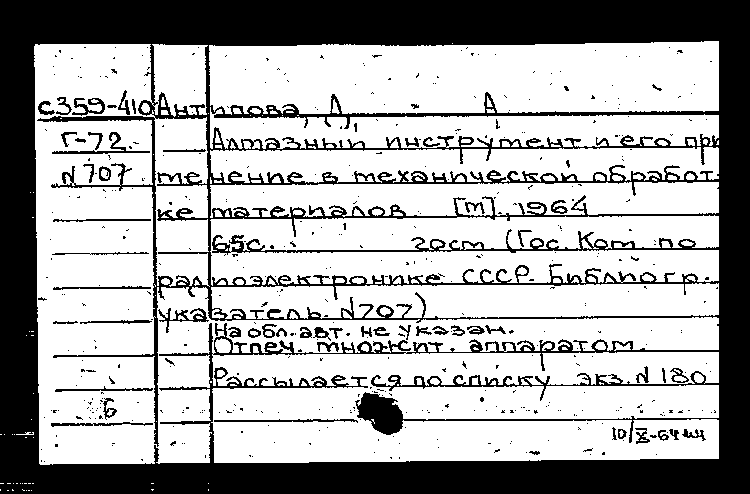 с359-410 Антипова, Л, А
Г-72. Алмазный инструмент и его при
N707 менение в механической обработ-
ке материалов. [М], 1964
65с. 20см (Гос. Ком. по
радиоэлектронике СССР. Библиогр.
указатель. N707).
На обл. авт. не указан.
Отпеч. множит. аппаратом.
Рассылается по списку экз. N 180
6
10/X-64